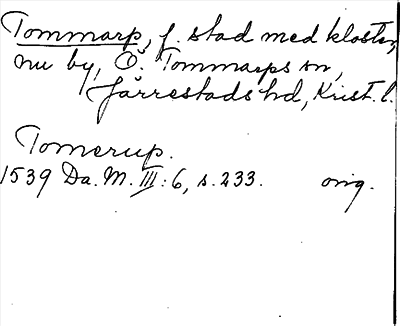 Tommarp, f. stad med kloster,
nu by, Ö. Tommarps sn,
Järrestads hd, Krist. l.
Tomerup.
1539 Da. M. III: 6, s. 233. orig.